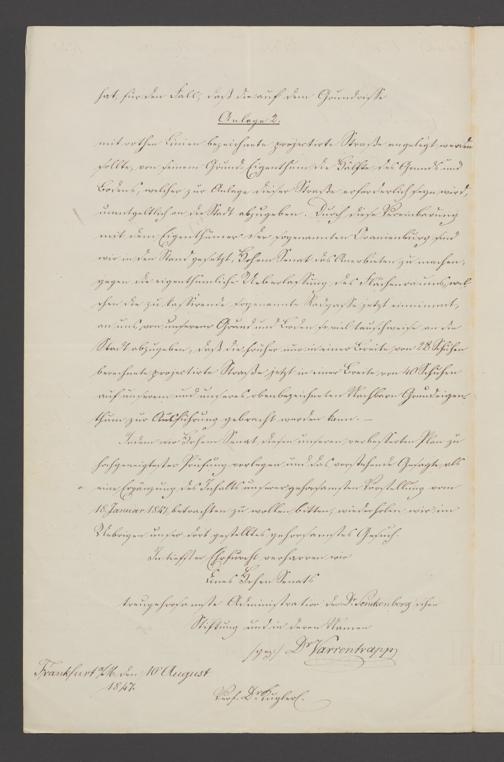 hat, für den Fall, daß die auf dem Grundrisse
Anlage 2.
mit rothen Linien bezeichnete projectirte Straße angelegt werden
sollte, von seinem Grund Eigenthum die Hälfte des Grund und
Bodens, welcher zur Anlage dieser Straße erforderlich seyn wird,
unentgeltlich an die Stadt abzugeben. Durch diese Vereinbarung
mit dem Eigenthümer der sogenannten Oranienburg sind
wir in den Stand gesetzt, Hohem Senat das Anerbieten zu machen,
gegen die eigenthümliche Ueberlassung des Flächenraums, wel
chen die zu cassirende sogenannte Radgasse jetzt einnimmt,
an uns, von unserem Grund und Boden soviel tauschweise an die
Stadt abzugeben, daß die früher nur in einer Breite von 28 Schuhen
berechnete projectirte Straße, jetzt in einer Breite von 40 Schuhen
auf unserem und unseres obenbezeichneten Nachbarn Grundeigen
thum zur Ausführung gebracht werden kann. —
Indem wir Hohem Senat diesen unseren verbesserten Plan zu
hochgeneigtester Prüfung vorlegen und das vorstehende Gesagte als
eine Ergänzung des Inhalts unserer gehorsamsten Vorstellung vom
18 Januar 1847 betrachten zu wollen bitten, wiederholen wir im
Uebrigen unser dort gestelltes gehorsamstes Gesuch.
In tiefster Ehrfurcht verharren wir
Eines Hohen Senats
treugehorsamste Administration der Dr. Senkenberg'schen
Stiftung und in deren Namen
(gez.) Dr. Varrentrapp
Frankfurt a/M. den 10 August
1847.